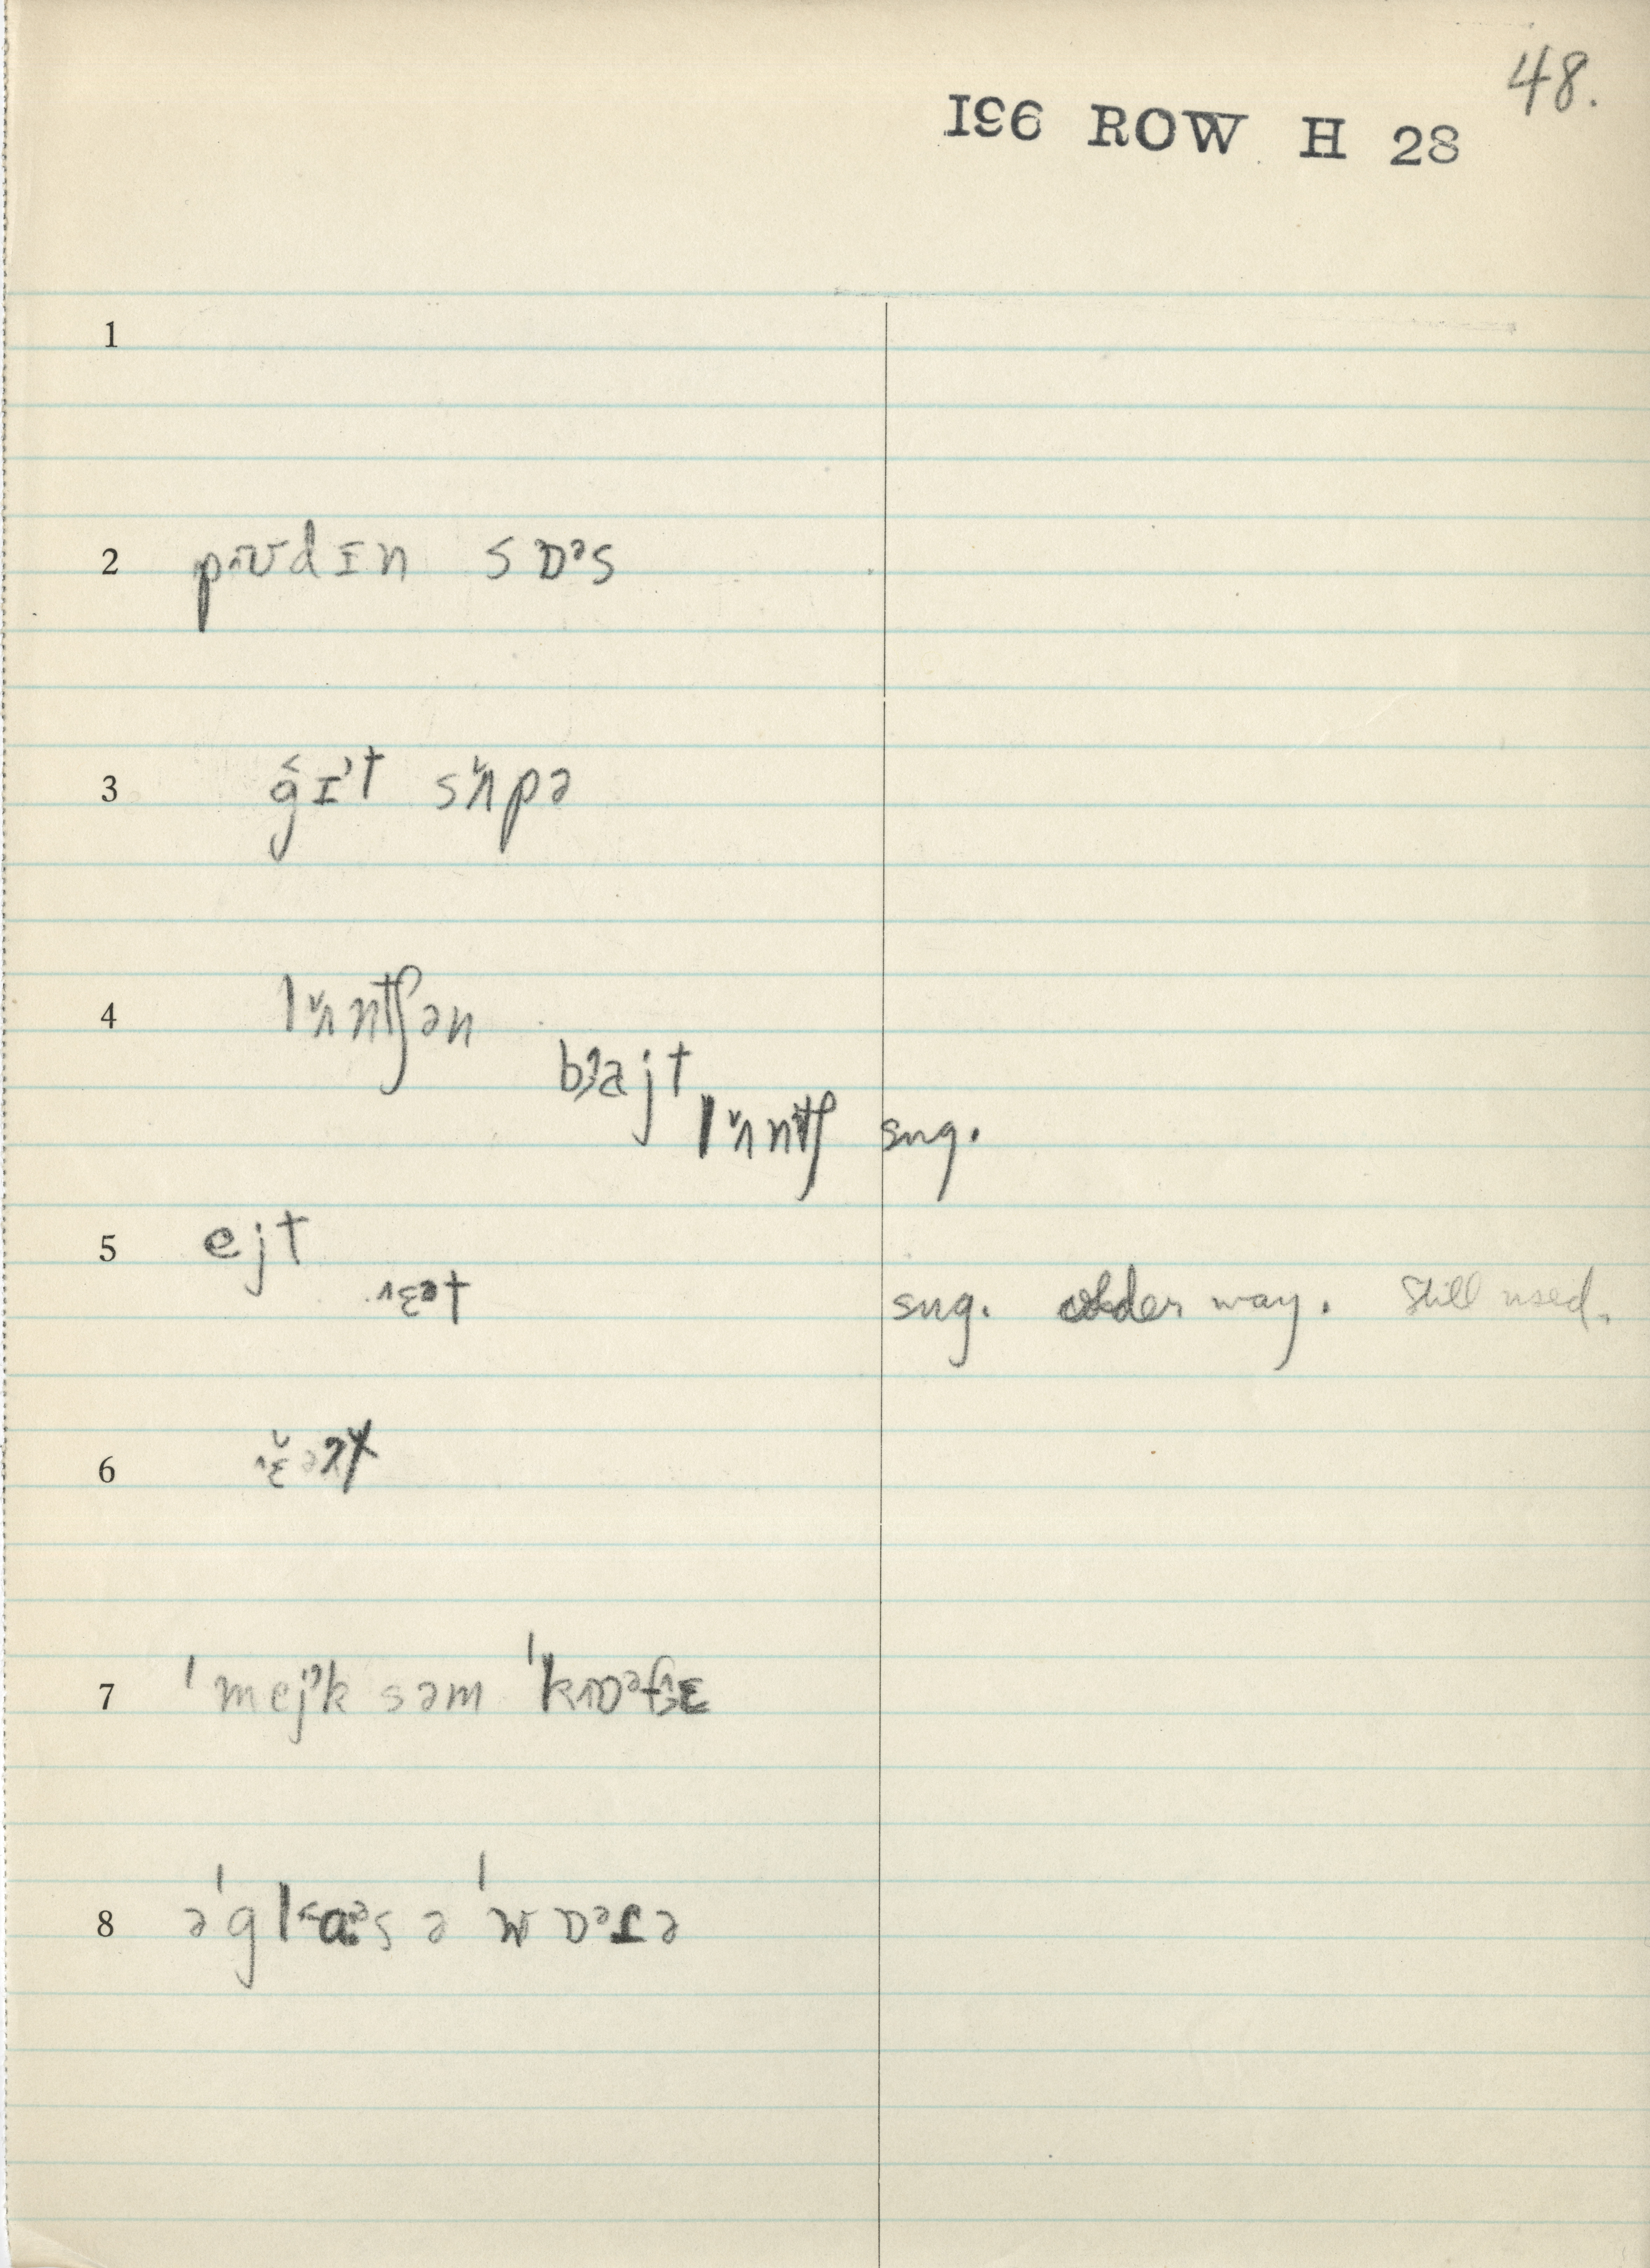 48.
196 ROW H 28
1
2 pᴧʊdɪn sɒᵊs
3 g�ɪᵊt sʌ̆pə
4 lʌ̆ntʃən
bɜajt
lʌ̆ntʃ sug.
5 ejt
ɛət sug. older way. Still used.
6
7 ˈmejᵊk səm ˈkɒᵊfɪɛ
8 əˈglaᵊs ə ˈwɒᵊɾə